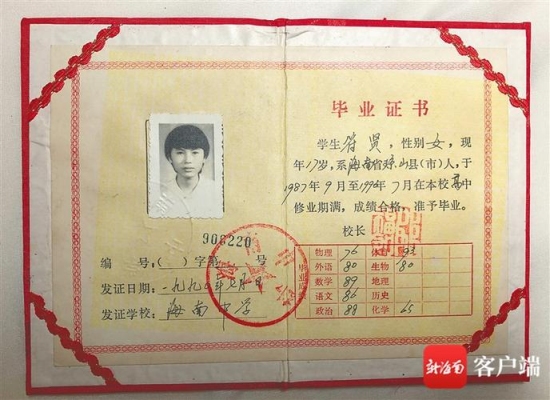 毕业证书
学生符贤,性别女,现
年17岁,系海南省琼山县(市)人,于
1987年9月至1990年7月在本校高中
修业期满,成绩合格,准予毕业。
校长
908220
编 号:( )字第 号
发证日期:一九九〇年七月 日
发证学校:海南中学
毕业成绩
物理 76 体育
外语 80 生物 80
数学 89 地理
语文 86 历史
政治 88 化学 65
新海南 客户端